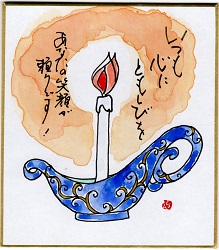 いつも
心に
ともしびを
あなたの笑顔が
頼りです！